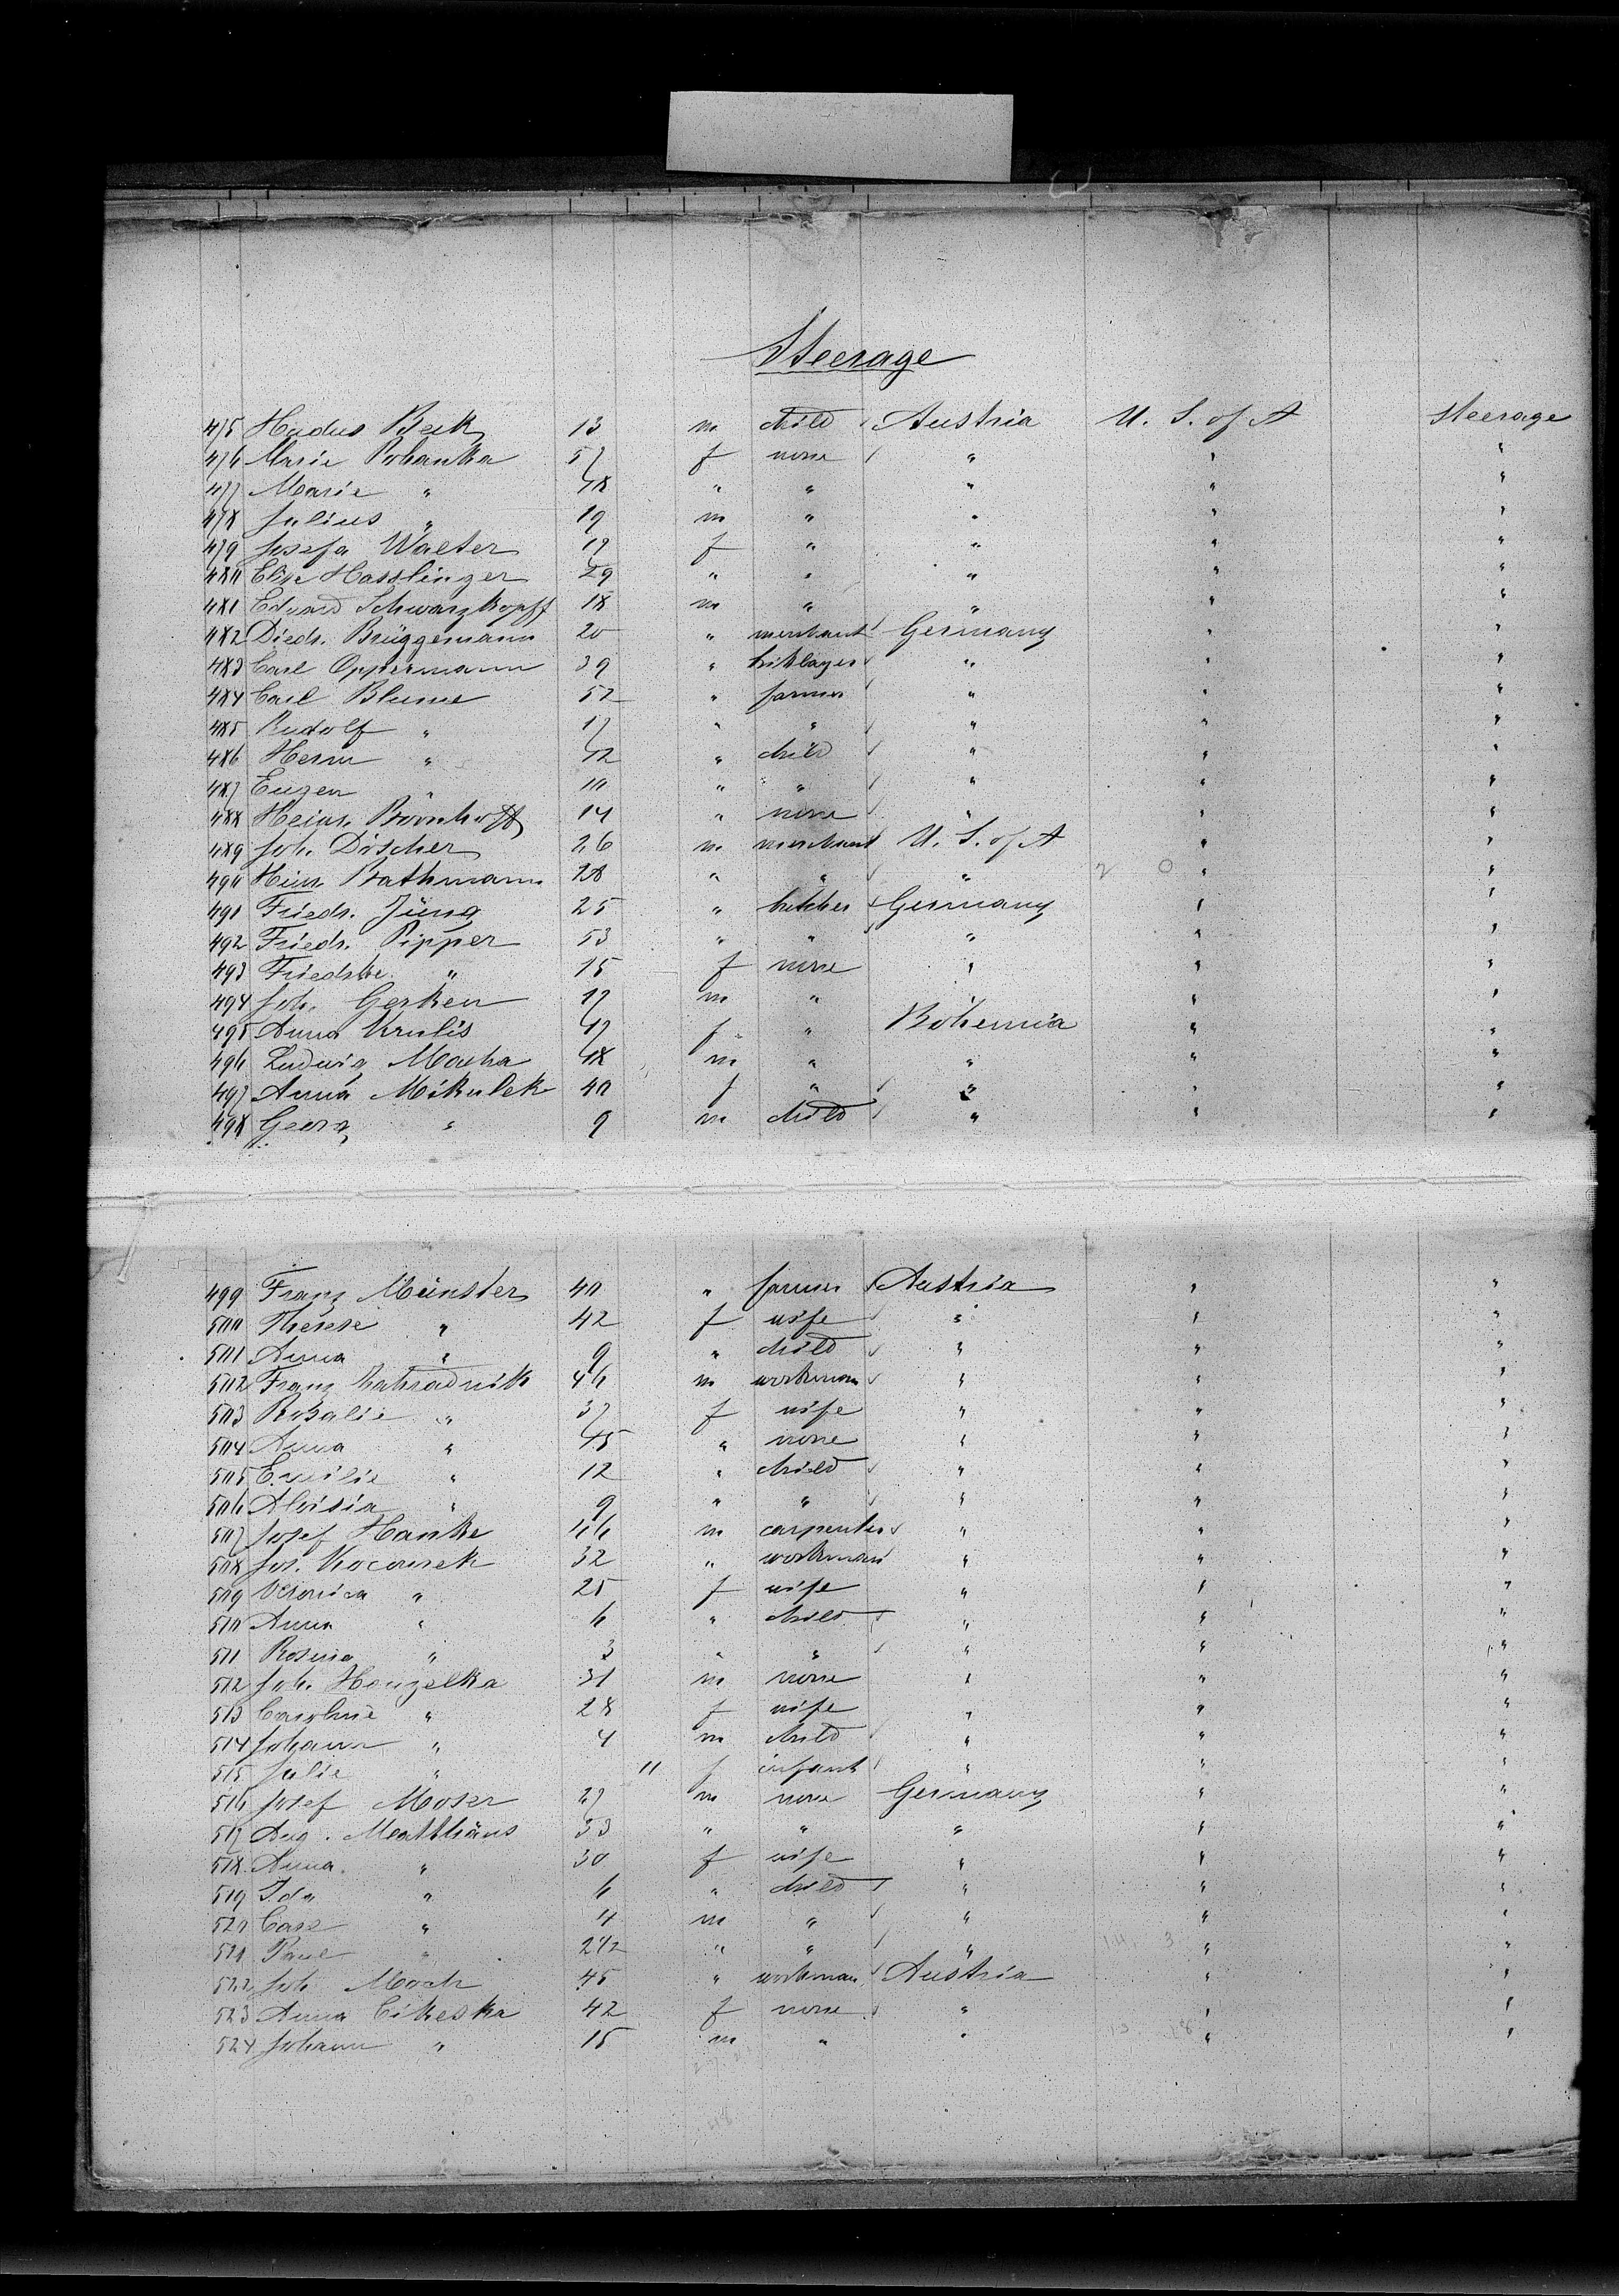 Steerage
475 Hudus Beck 13 m child Austria U. S. of A Steerage
476 Marie Pohanka 57 f none " " "
477 Marie " 18 " " " " "
478 Julius " 19 m " " " "
479 Josefa Walter 17 f " " " "
480 Elise Hasslinger 29 " " " " "
481 Eduard Schwarzkopff 18 m " " " "
482 Diedr. Brüggemann 20 " merchant Germany " "
483 Carl Oppermann 39 " briklayer " " "
484 Carl Blume 52 " farmer " " "
485 Rudolf " 17 " " " " "
486 Herm " 12 " child " " "
487 Eugen " 10 " " " " "
488 Heinr. Börnhofft 14 " none " " "
489 Joh. Döscher 26 m merchant U. S. of A " "
490 Heinr Bathmann 28 " " " " "
491 Friedr. Jüng 25 " butcher Germany " "
492 Friedr. Pipper 53 " " " " "
493 Friedrke " 15 f none " " "
494 Joh. Gerken 17 m " " " "
495 Anna Krulis 17 f " Bohemia " "
496 Ludwig Macha 18 m " " " "
497 Anna Mikulek 40 f " " " "
498 Georg " 9 m child " " "
499 Franz Münster 40 " farmer Austria " "
500 Therese " 42 f wife " " "
501 Anna " 9 " child " " "
502 Franz Zahradnik 46 m workman " " "
503 Rosalie " 37 f wife " " "
504 Anna " 15 " none " " "
505 Emilie " 12 " child " " "
506 Aloisia " 9 " " " " "
507 Josef Hanke 46 m carpenter " " "
508 Jos. Kocourek 32 " workman " " "
509 Veronica " 25 f wife " " "
510 Anna " 6 " child " " "
511 Rosina " 3 " " " " "
512 Joh. Honzelka 31 m none " " "
513 Caroline " 28 f wife " " "
514 Johann " 4 m child " " "
515 Julie " 11 f infant " " "
516 Josef Moser 27 m none Germany " "
517 Aug. Matthäus 33 " " " " "
518 Anna " 30 f wife " " "
519 Ida " 6 " child " " "
520 Carl " 4 m " " " "
521 Paul " 2 1/2 " " " " "
522 Joh Moch 45 " workman Austria " "
523 Anna Cikeska 42 f none " " "
524 Johann " 15 m " " " "